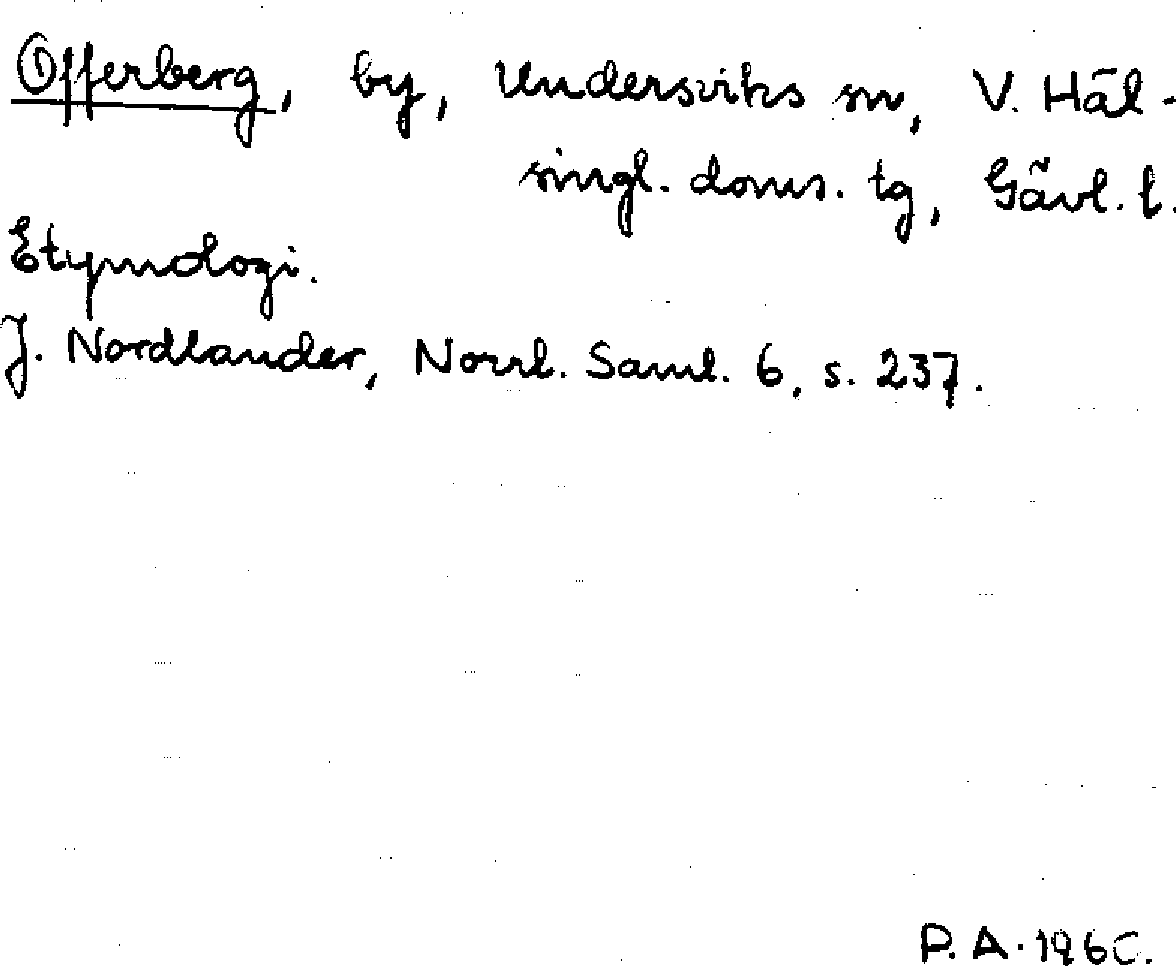 Offerberg, by, Undersviks sn, V. Häl-
singl. doms. tg, Gävl. l.
Etymologi.
J. Nordlander, Norrl. Saml. 6, s. 237.
P. A. 1960.